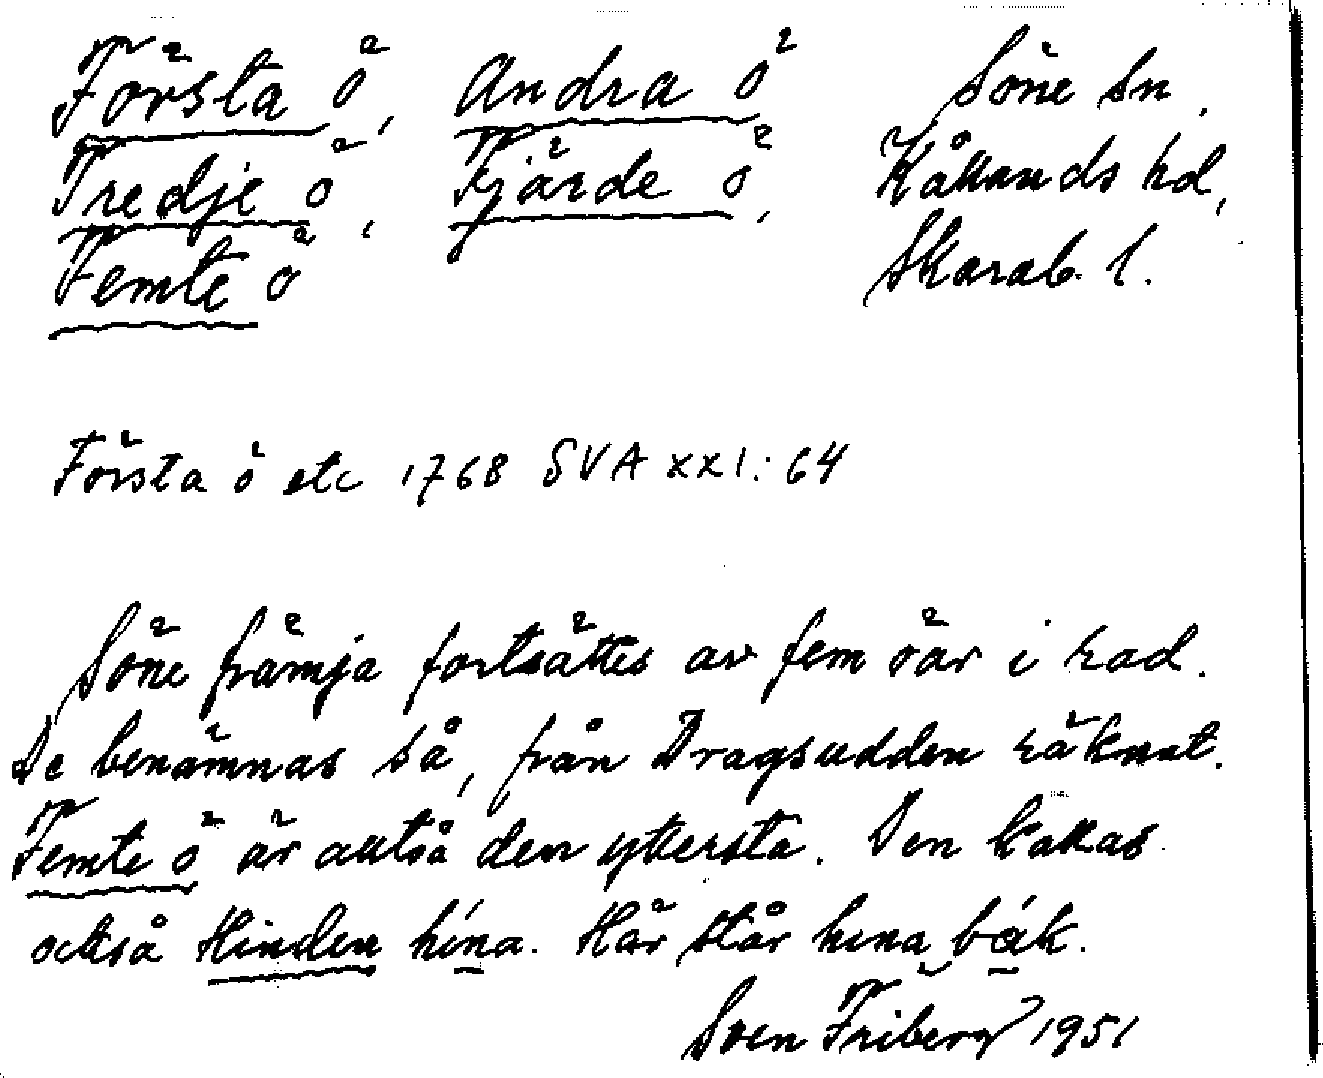 Första ö, Andra ö, Söne sn,
Tredje ö, Fjärde ö, Kållands hd,
Femte ö Skarab. l.
Första ö etc 1768 SVA XXI:64
Söne främja fortsättes av fem öar i rad.
De benämnas så, från Dragsudden räknat.
Femte ö är alltså den yttersta. Den kallas
också Hinden hína. Här står hina bák.
Sven Friberg 1951